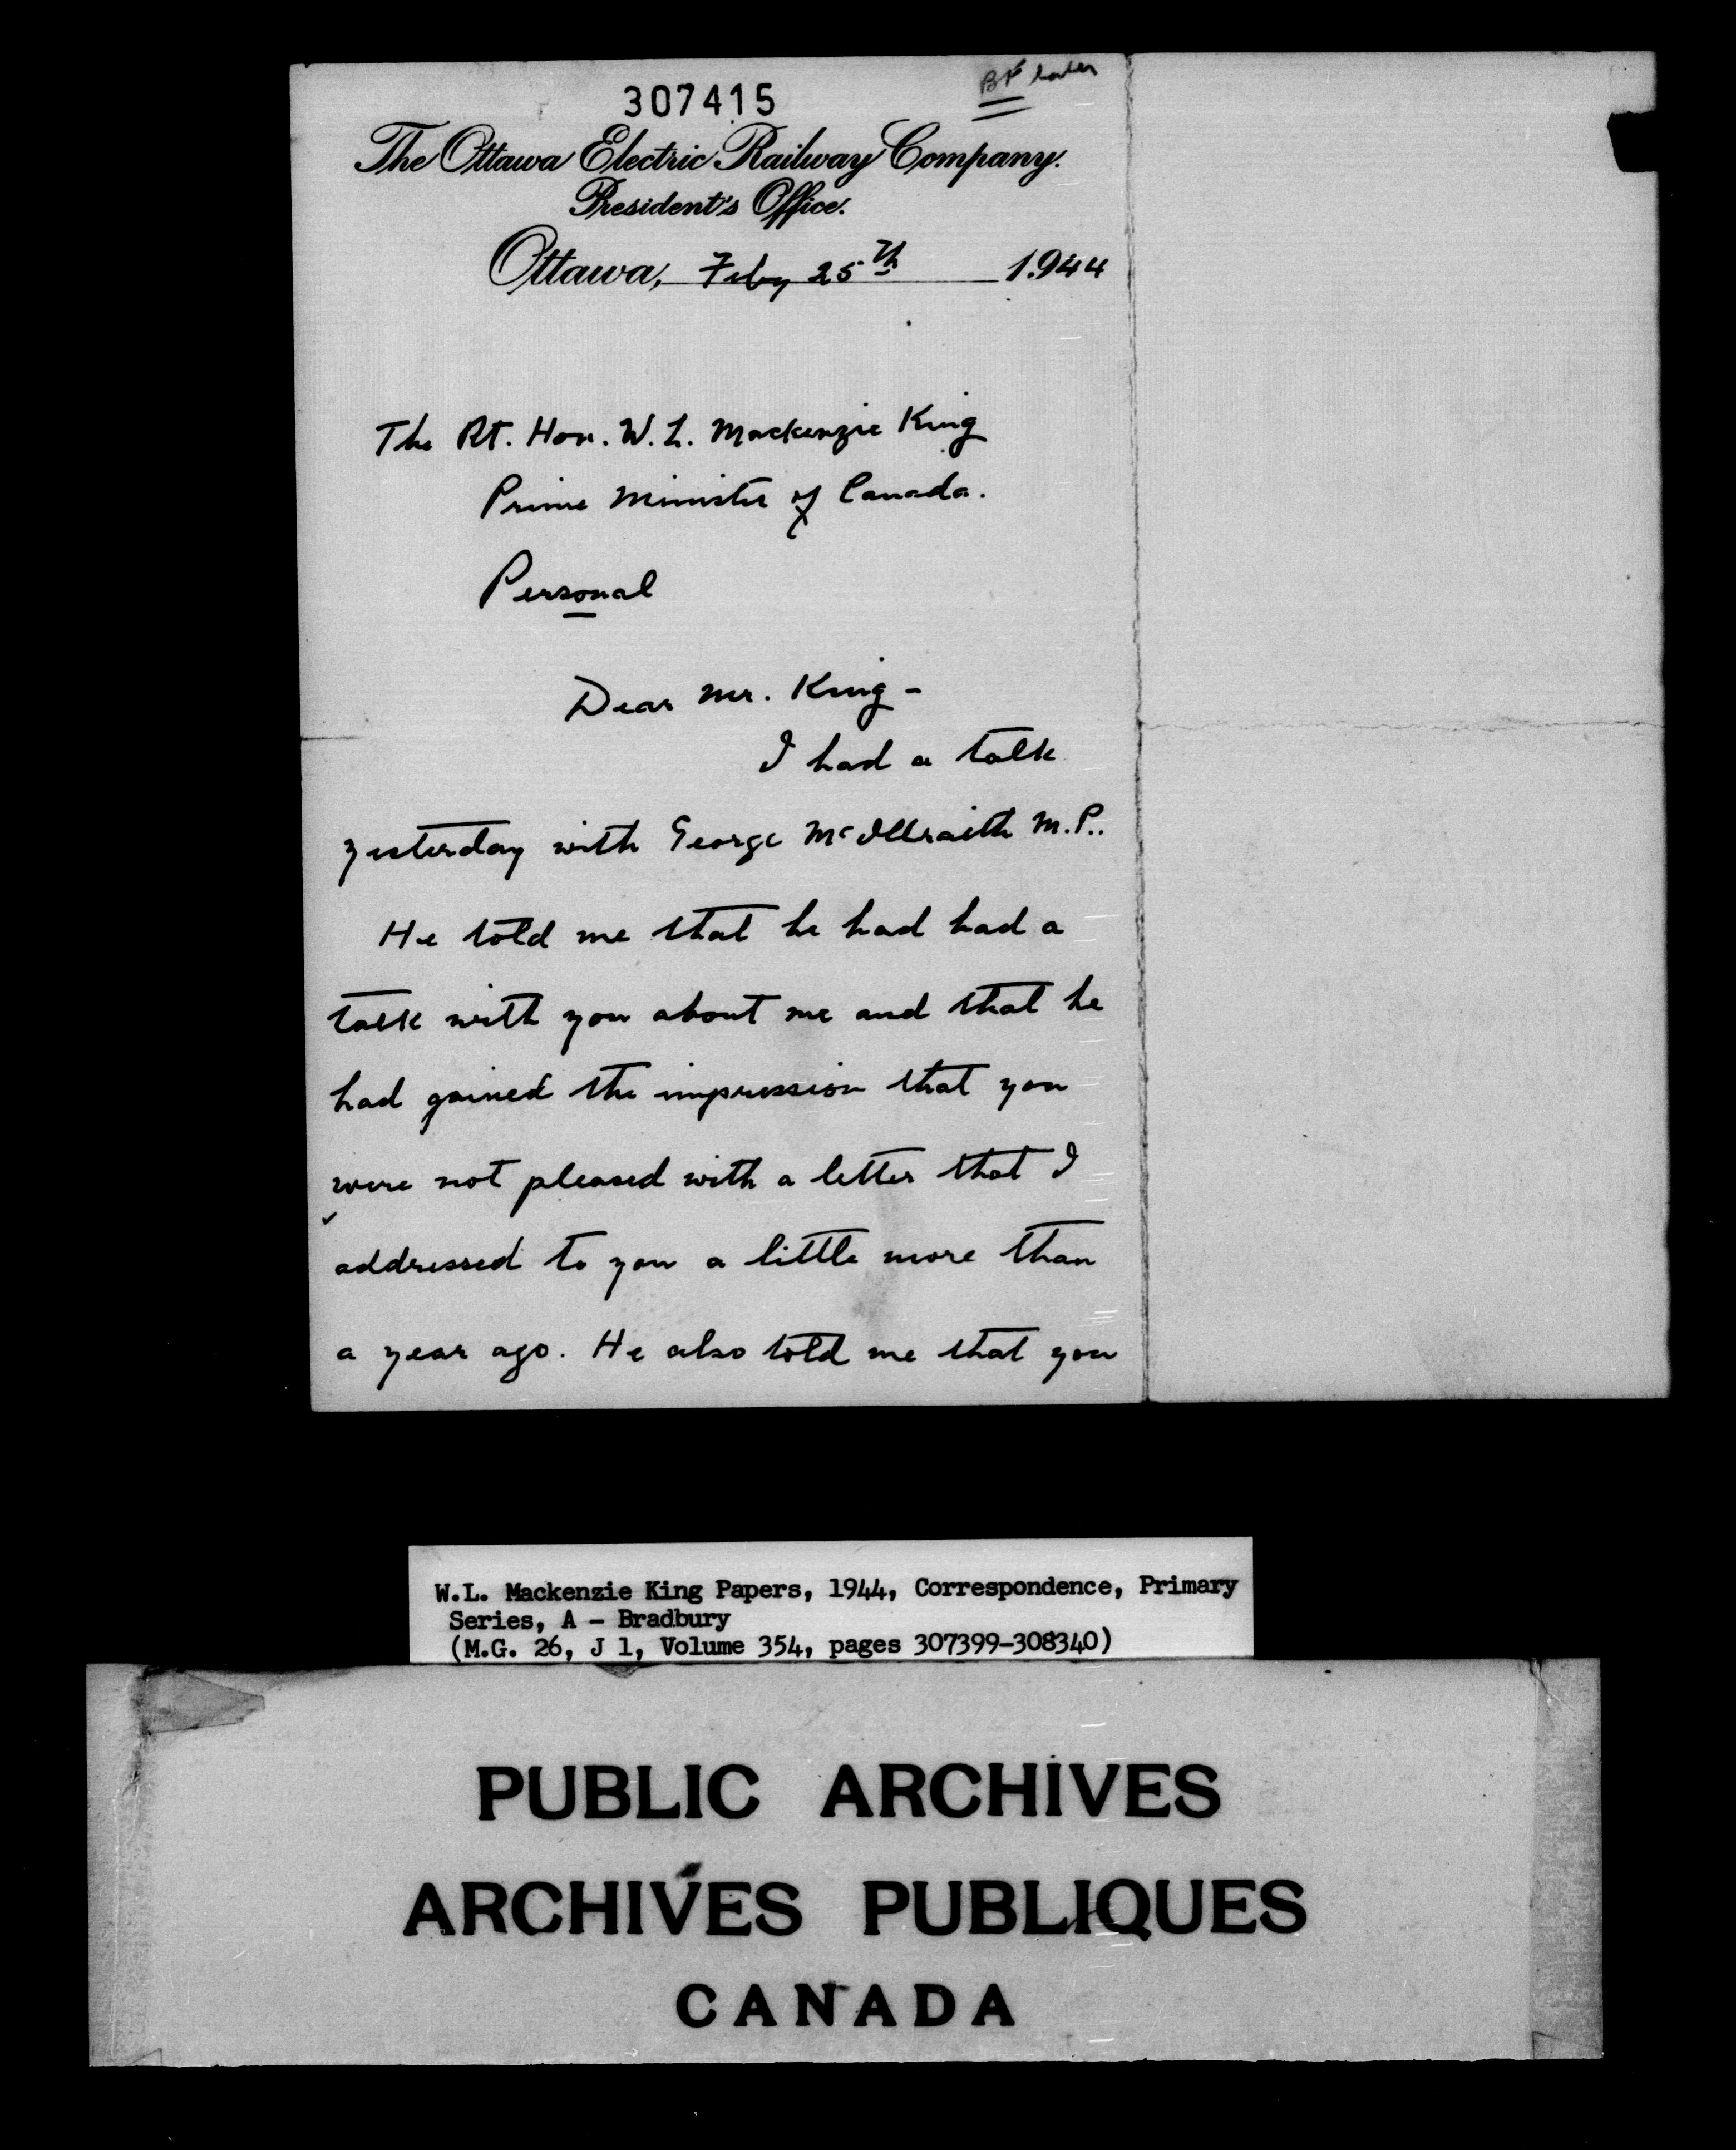 307415
BF later
The Ottawa Electric Railway Company.
President's Office.
Ottawa, Feby 25th 1944
The Rt. Hon. W. L. Mackenzie King
Prime Minister of Canada.
Personal
Dear Mr. King -
I had a talk
yesterday with George McIllraith M.P..
He told me that he had had a
talk with you about me and that he
had gained the impression that you
were not pleased with a letter that I
addressed to you a little more than
a year ago. He also told me that you
W.L. Mackenzie King Papers, 1944, Correspondence, Primary
Series, A - Bradbury
(M.G. 26, J 1, Volume 354, pages 307399-308340)
PUBLIC ARCHIVES
ARCHIVES PUBLIQUES
CANADA